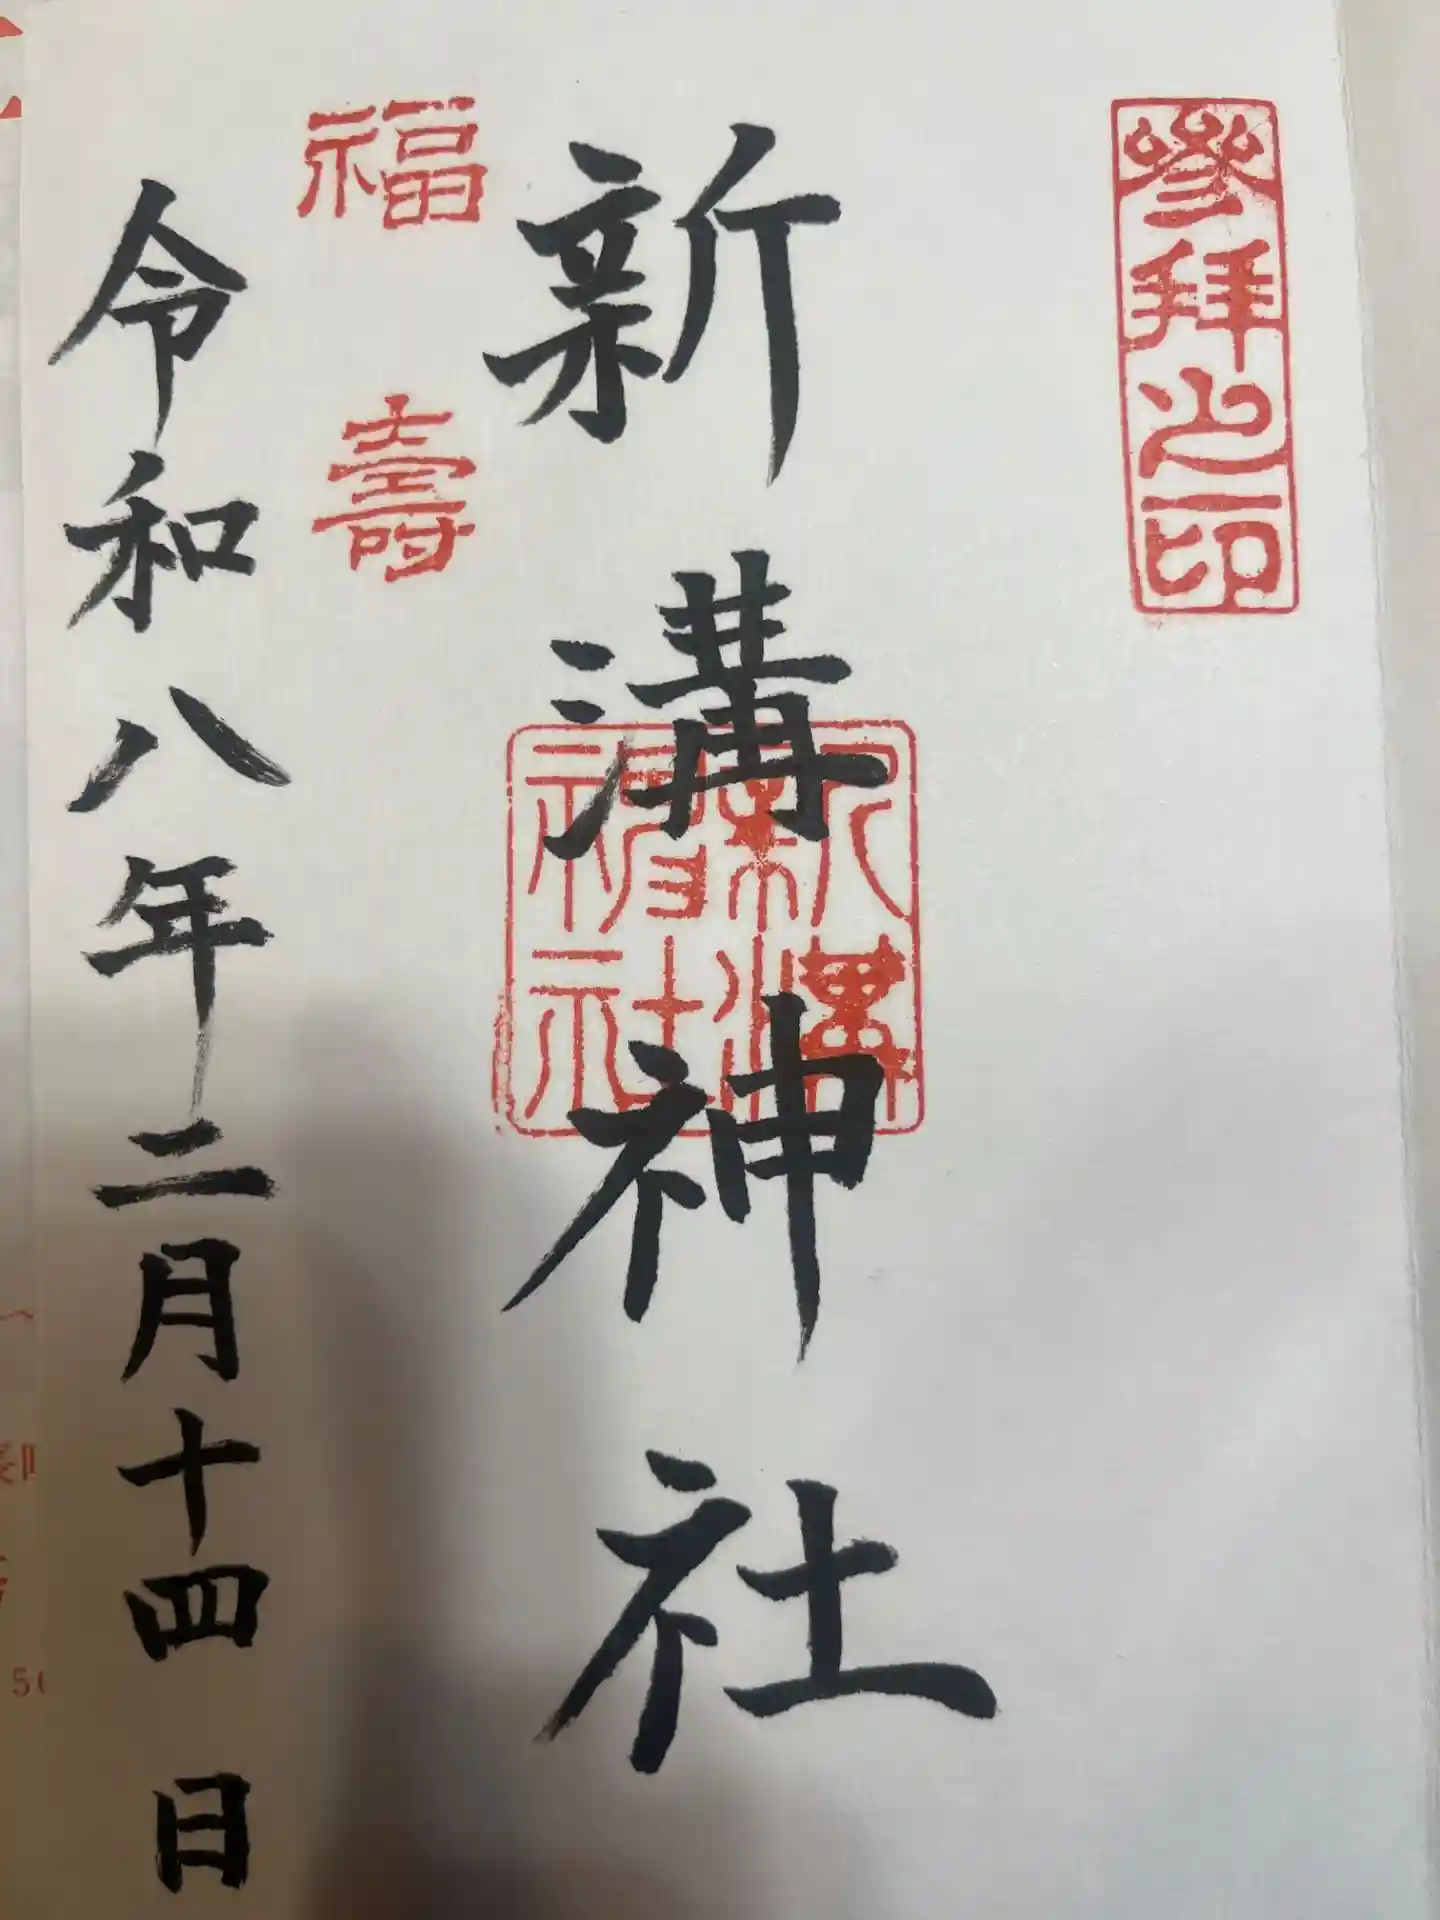 參拜之印
新溝神社
新溝神社
福壽
令和八年二月十四日